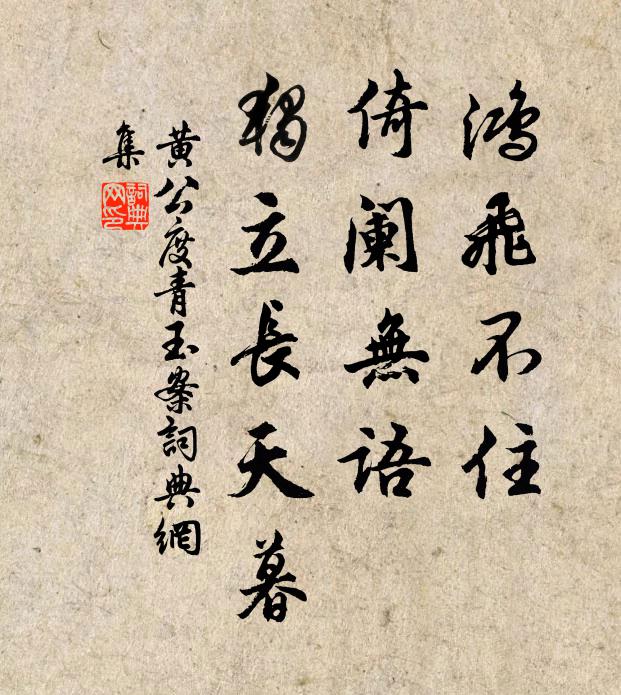 鸿飛不住
倚阑無語
獨立長天暮
黄公度青玉案詞典網
集
詞典
网印